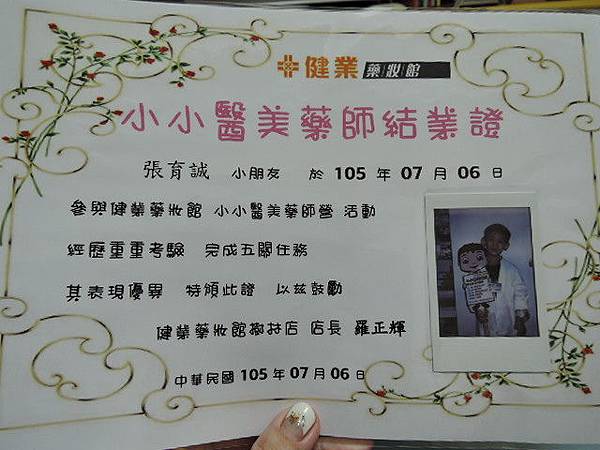 健業藥妝館
小小醫美藥師結業證
張育誠 小朋友 於 105 年 07 月 06 日
參與健業藥妝館 小小醫美藥師營 活動
經歷重重考驗 完成五關任務
其表現優異 特頒此證 以茲鼓勵
健業藥妝館樹林店 店長 羅正輝
中華民國 105 年 07 月 06 日